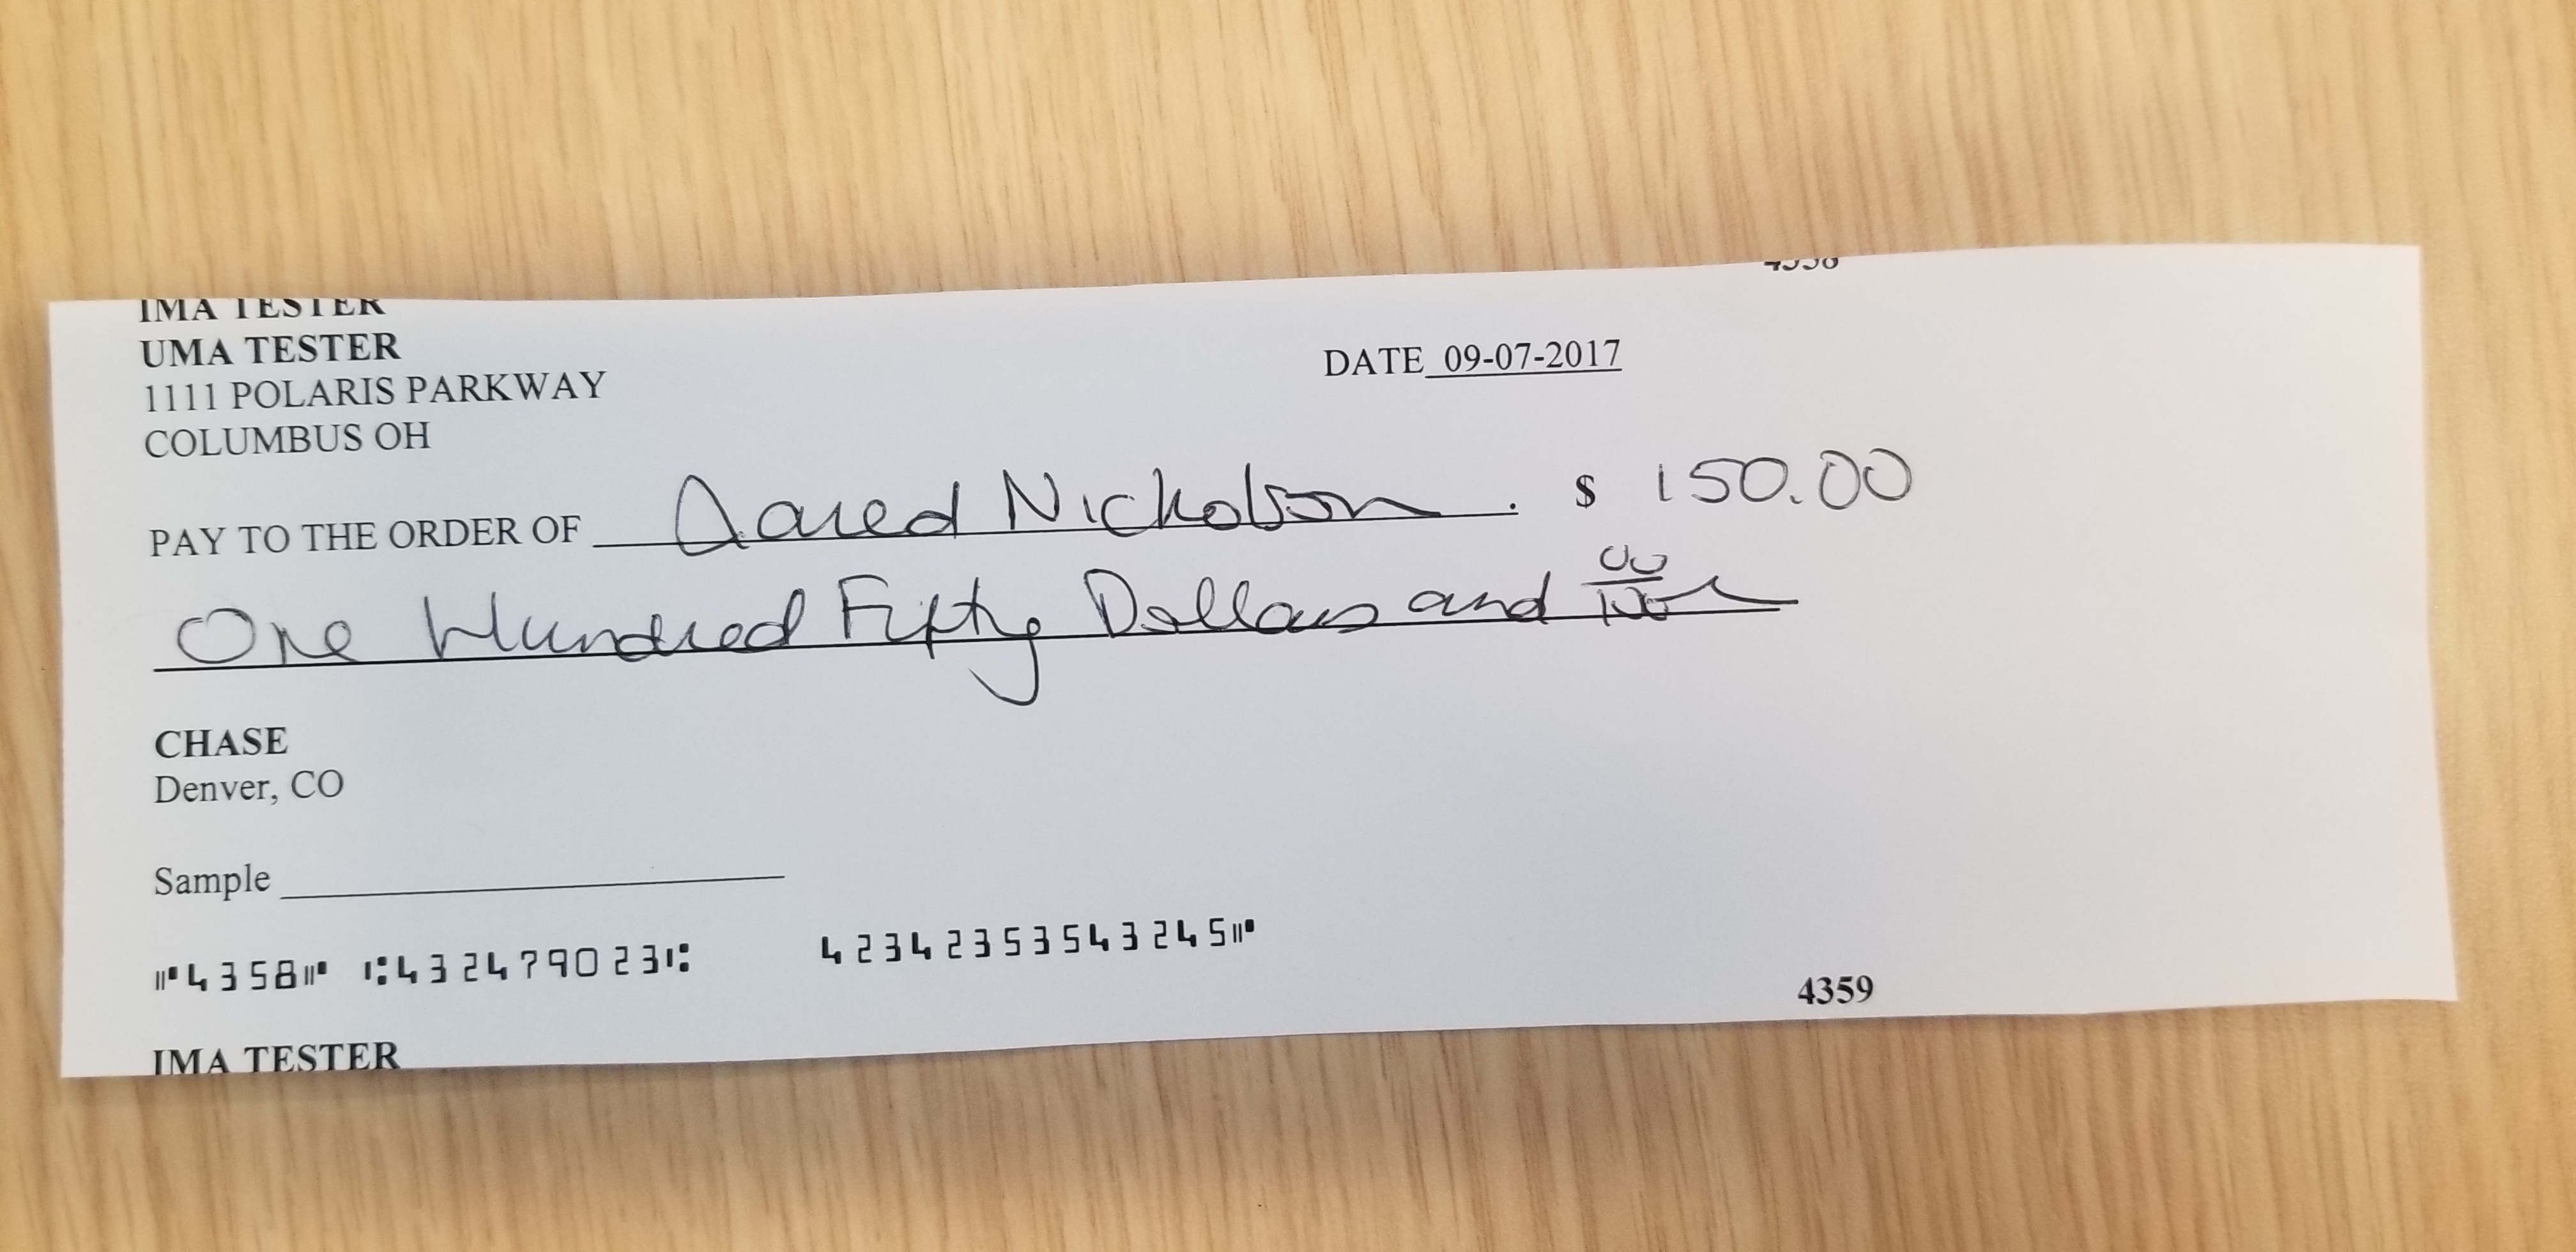 4358
IMA TESTER
UMA TESTER
1111 POLARIS PARKWAY
COLUMBUS OH
DATE 09-07-2017
PAY TO THE ORDER OF Jared Nickolson . $ 150.00
One Hundred Fifty Dollars and 00/100
CHASE
Denver, CO
Sample
⑈4358⑈ ⑆432479023⑆ 42342353543245⑈
4359
IMA TESTER